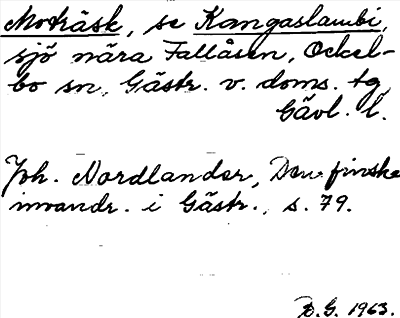 Moträsk, se Kangaslambi,
sjö nära Fallåsen, Ockel-
bo sn, Gästr. v. doms. tg,
Gävl. l.
Joh. Nordlander, Den finska
invandr. i Gästr., s. 79.
B.G. 1963.